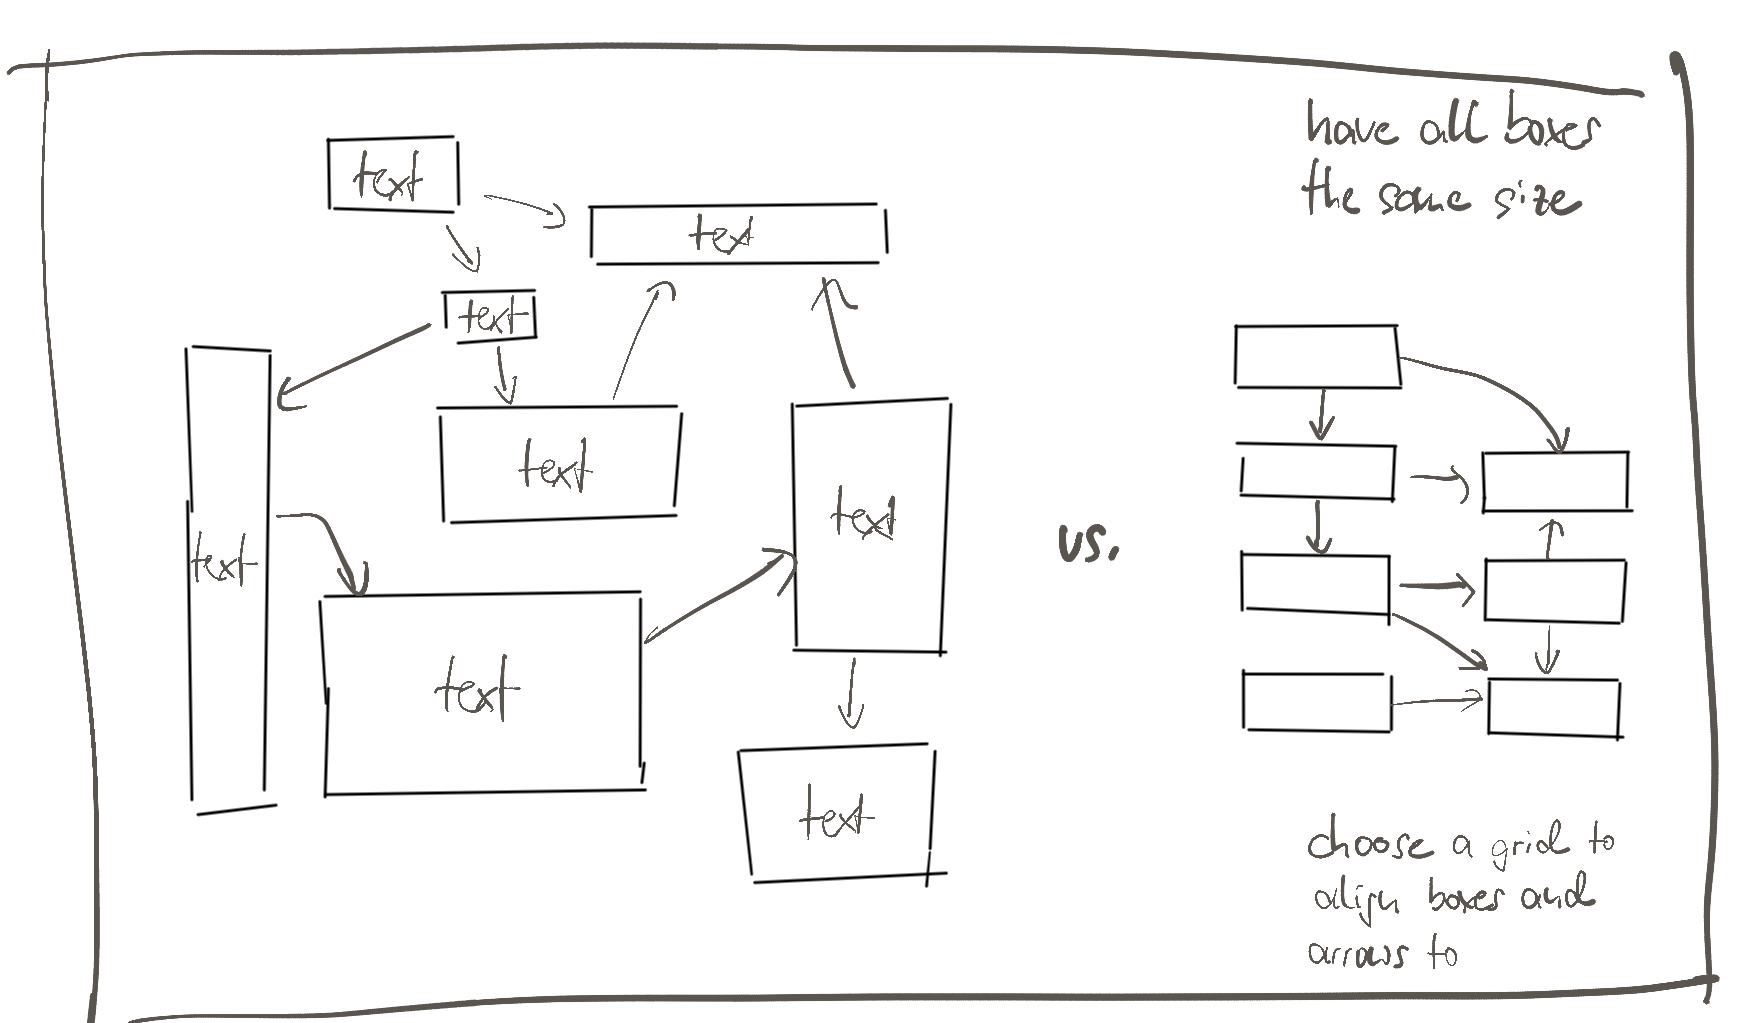 text
text
text
text
text
text
text
text
vs.
have all boxes
the same size
choose a grid to
align boxes and
arrows to